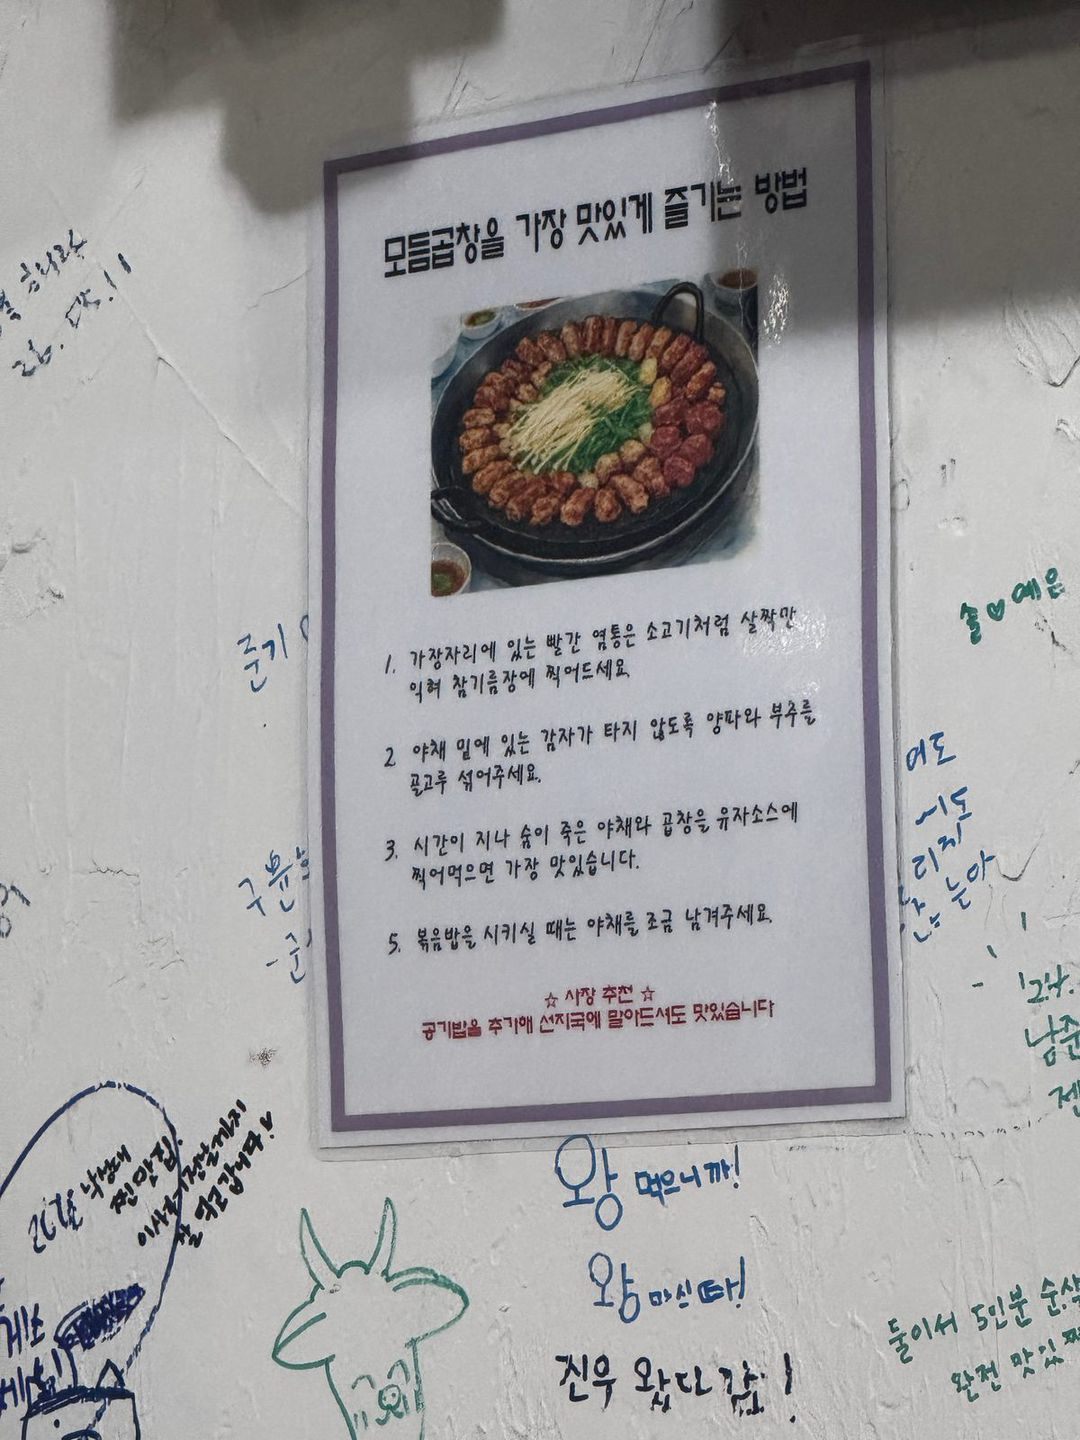 모듬곱창을 가장 맛있게 즐기는 방법
1. 가장자리에 있는 빨간 염통은 소고기처럼 살짝만
익혀 참기름장에 찍어드세요.
2 야채 밑에 있는 감자가 타지 않도록 양파와 부추를
골고루 섞어주세요.
3. 시간이 지나 숨이 죽은 야채와 곱창을 유자소스에
찍어먹으면 가장 맛있습니다.
5. 볶음밥을 시키실 때는 야채를 조금 남겨주세요.
☆ 사장 추천 ☆
공기밥을 추가해 선지국에 말아드셔도 맛있습니다
준기
솔♡예은
여도
리지
는아
남준
낙성대
찐맛집
잘 먹고갑니다!
왕 먹으니까!
왕 마신따!
진우 왔다감!
둘이서 5인분 순삭
완전 맛있